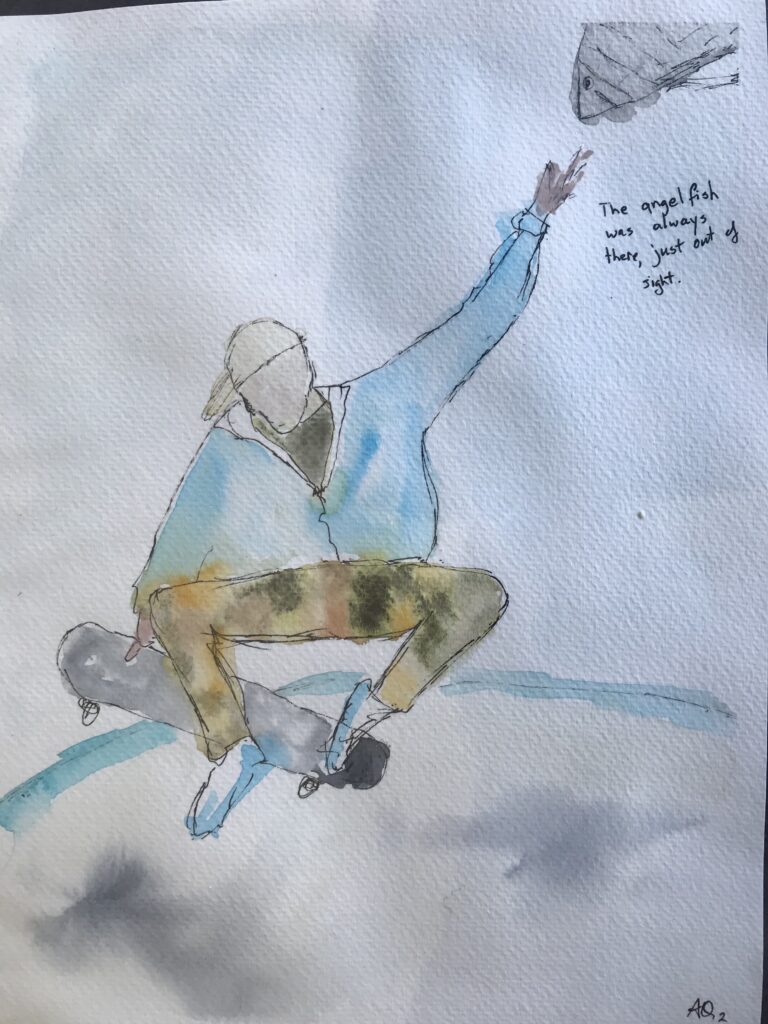 The angelfish
was always
there, just out of
sight.